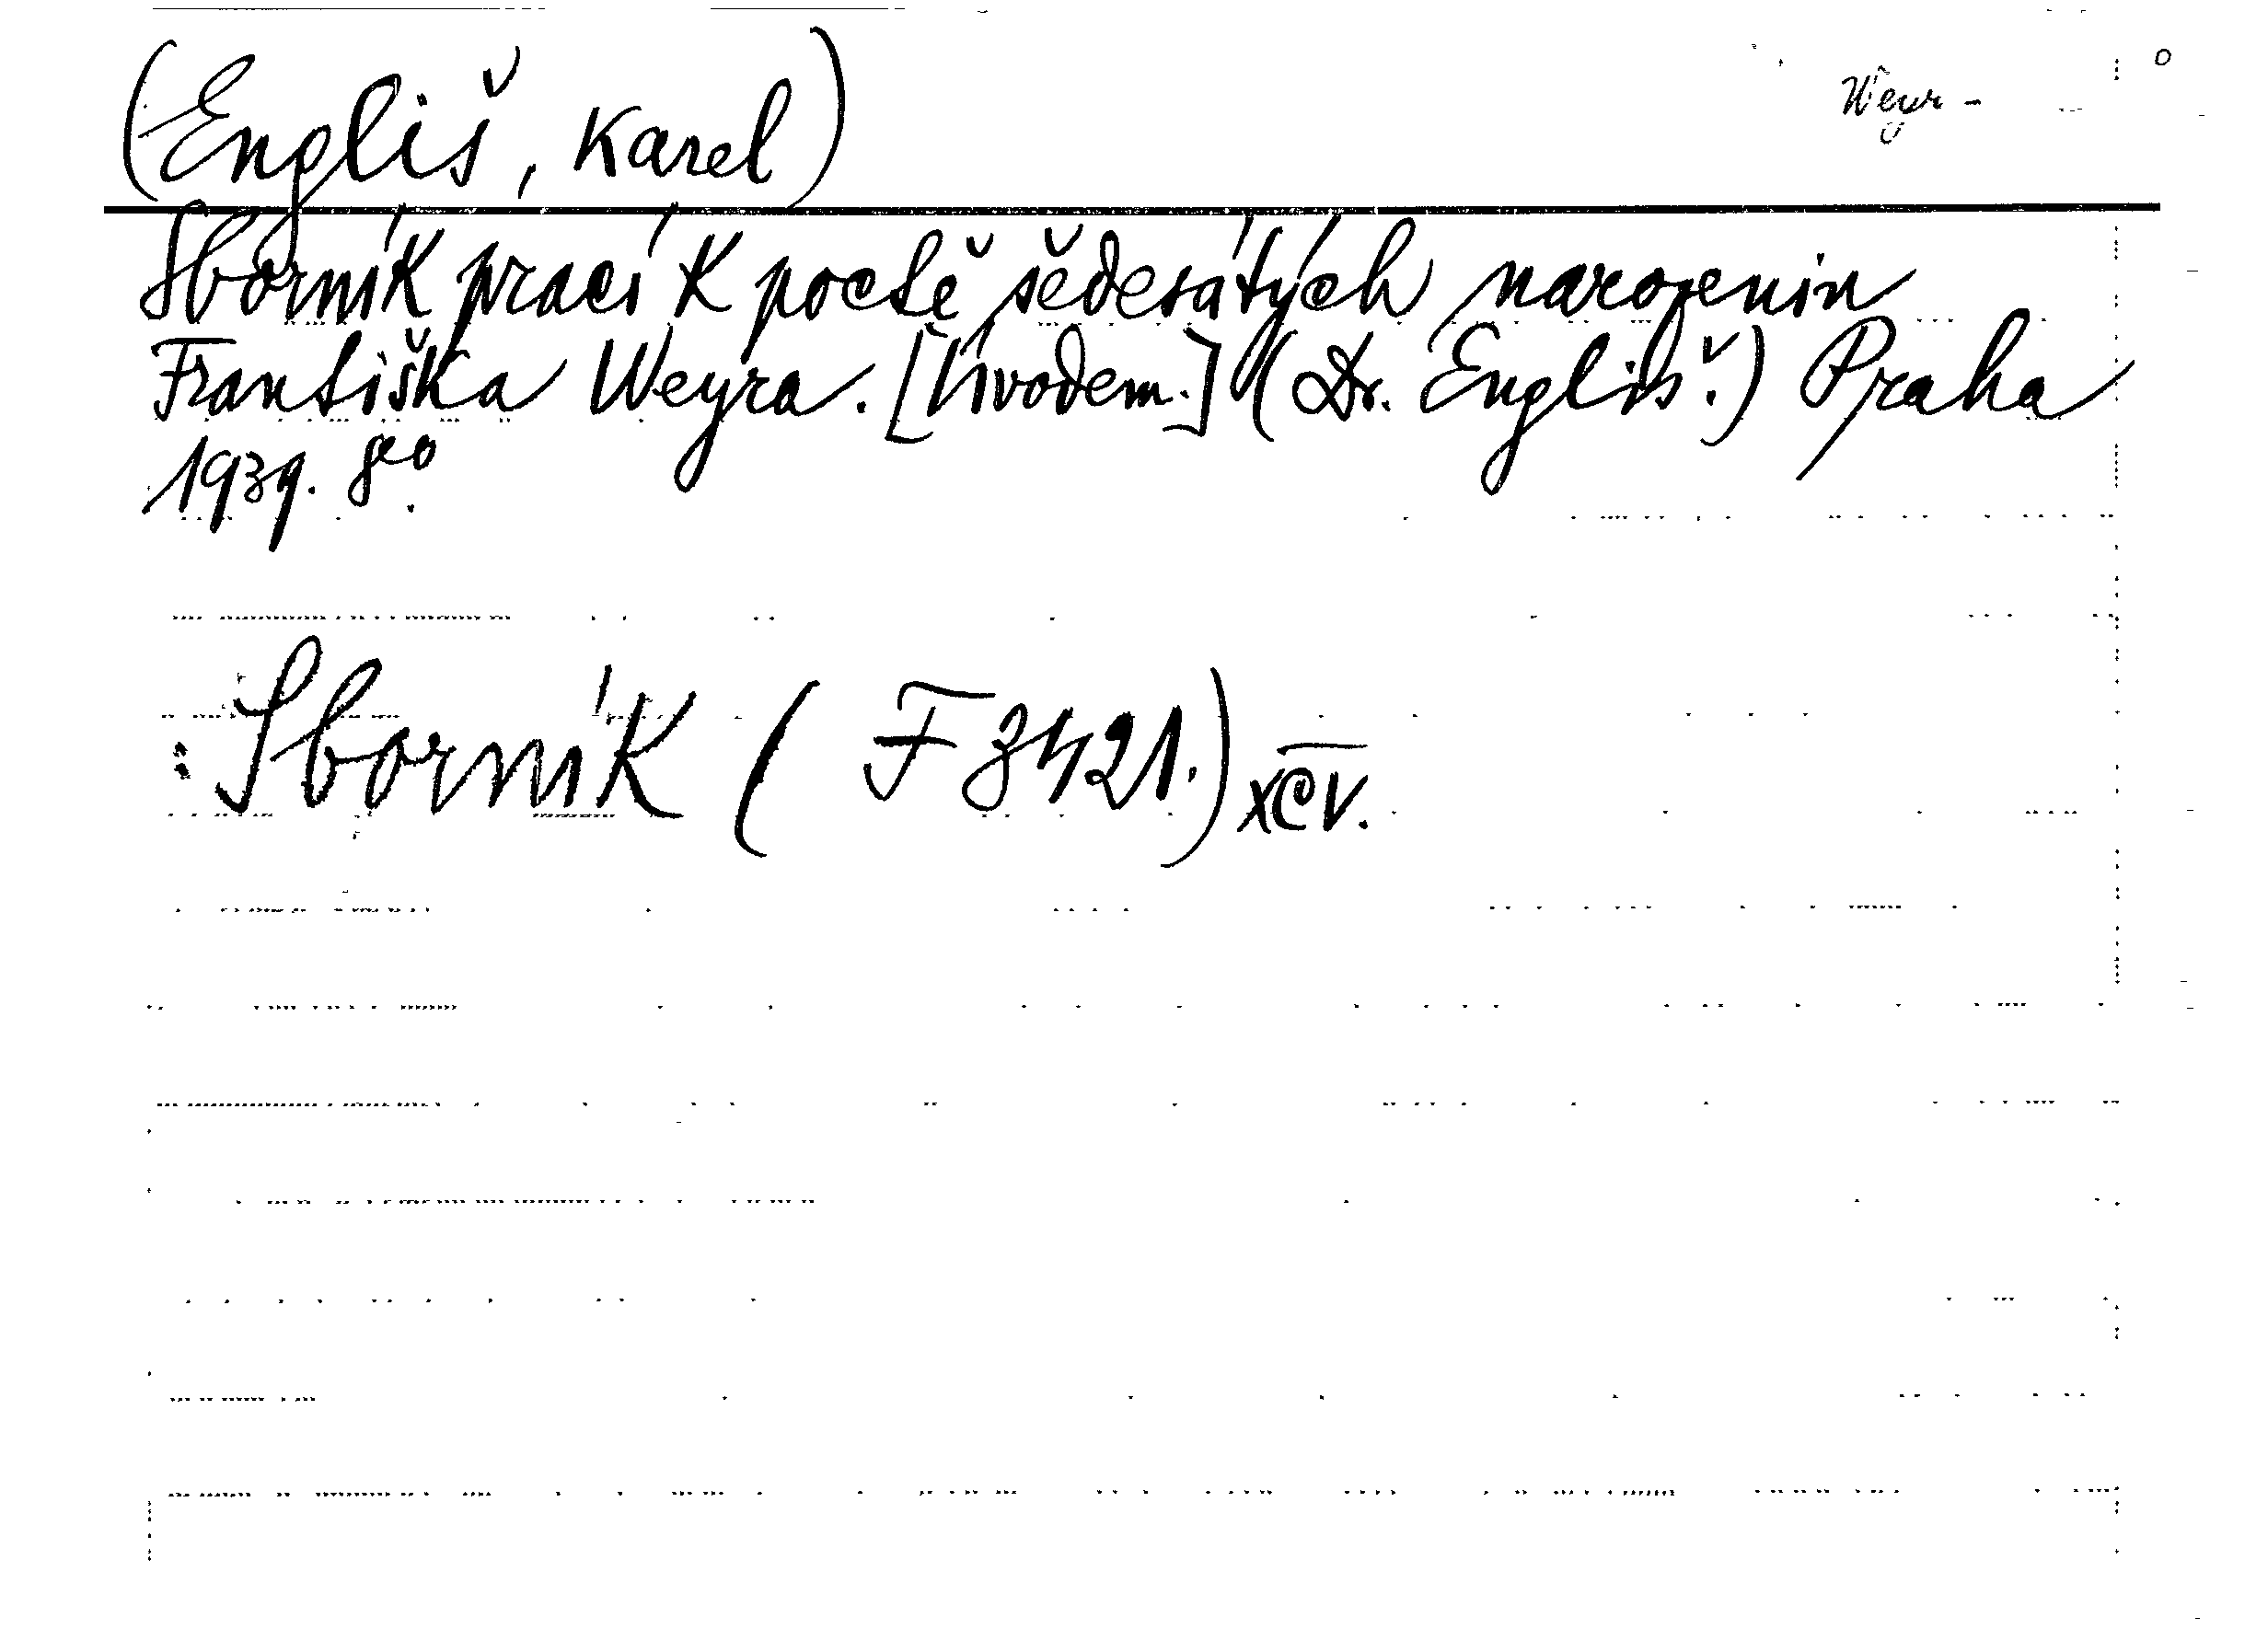 (Engliš, Karel)
Weyr -
Sborník prací k poctě šedesátých narozenin
Františka Weyra. [Úvodem.] (Dr. Engliš.) Praha
1939. 8eo.
: Sborník ( F 3421.) XCV.